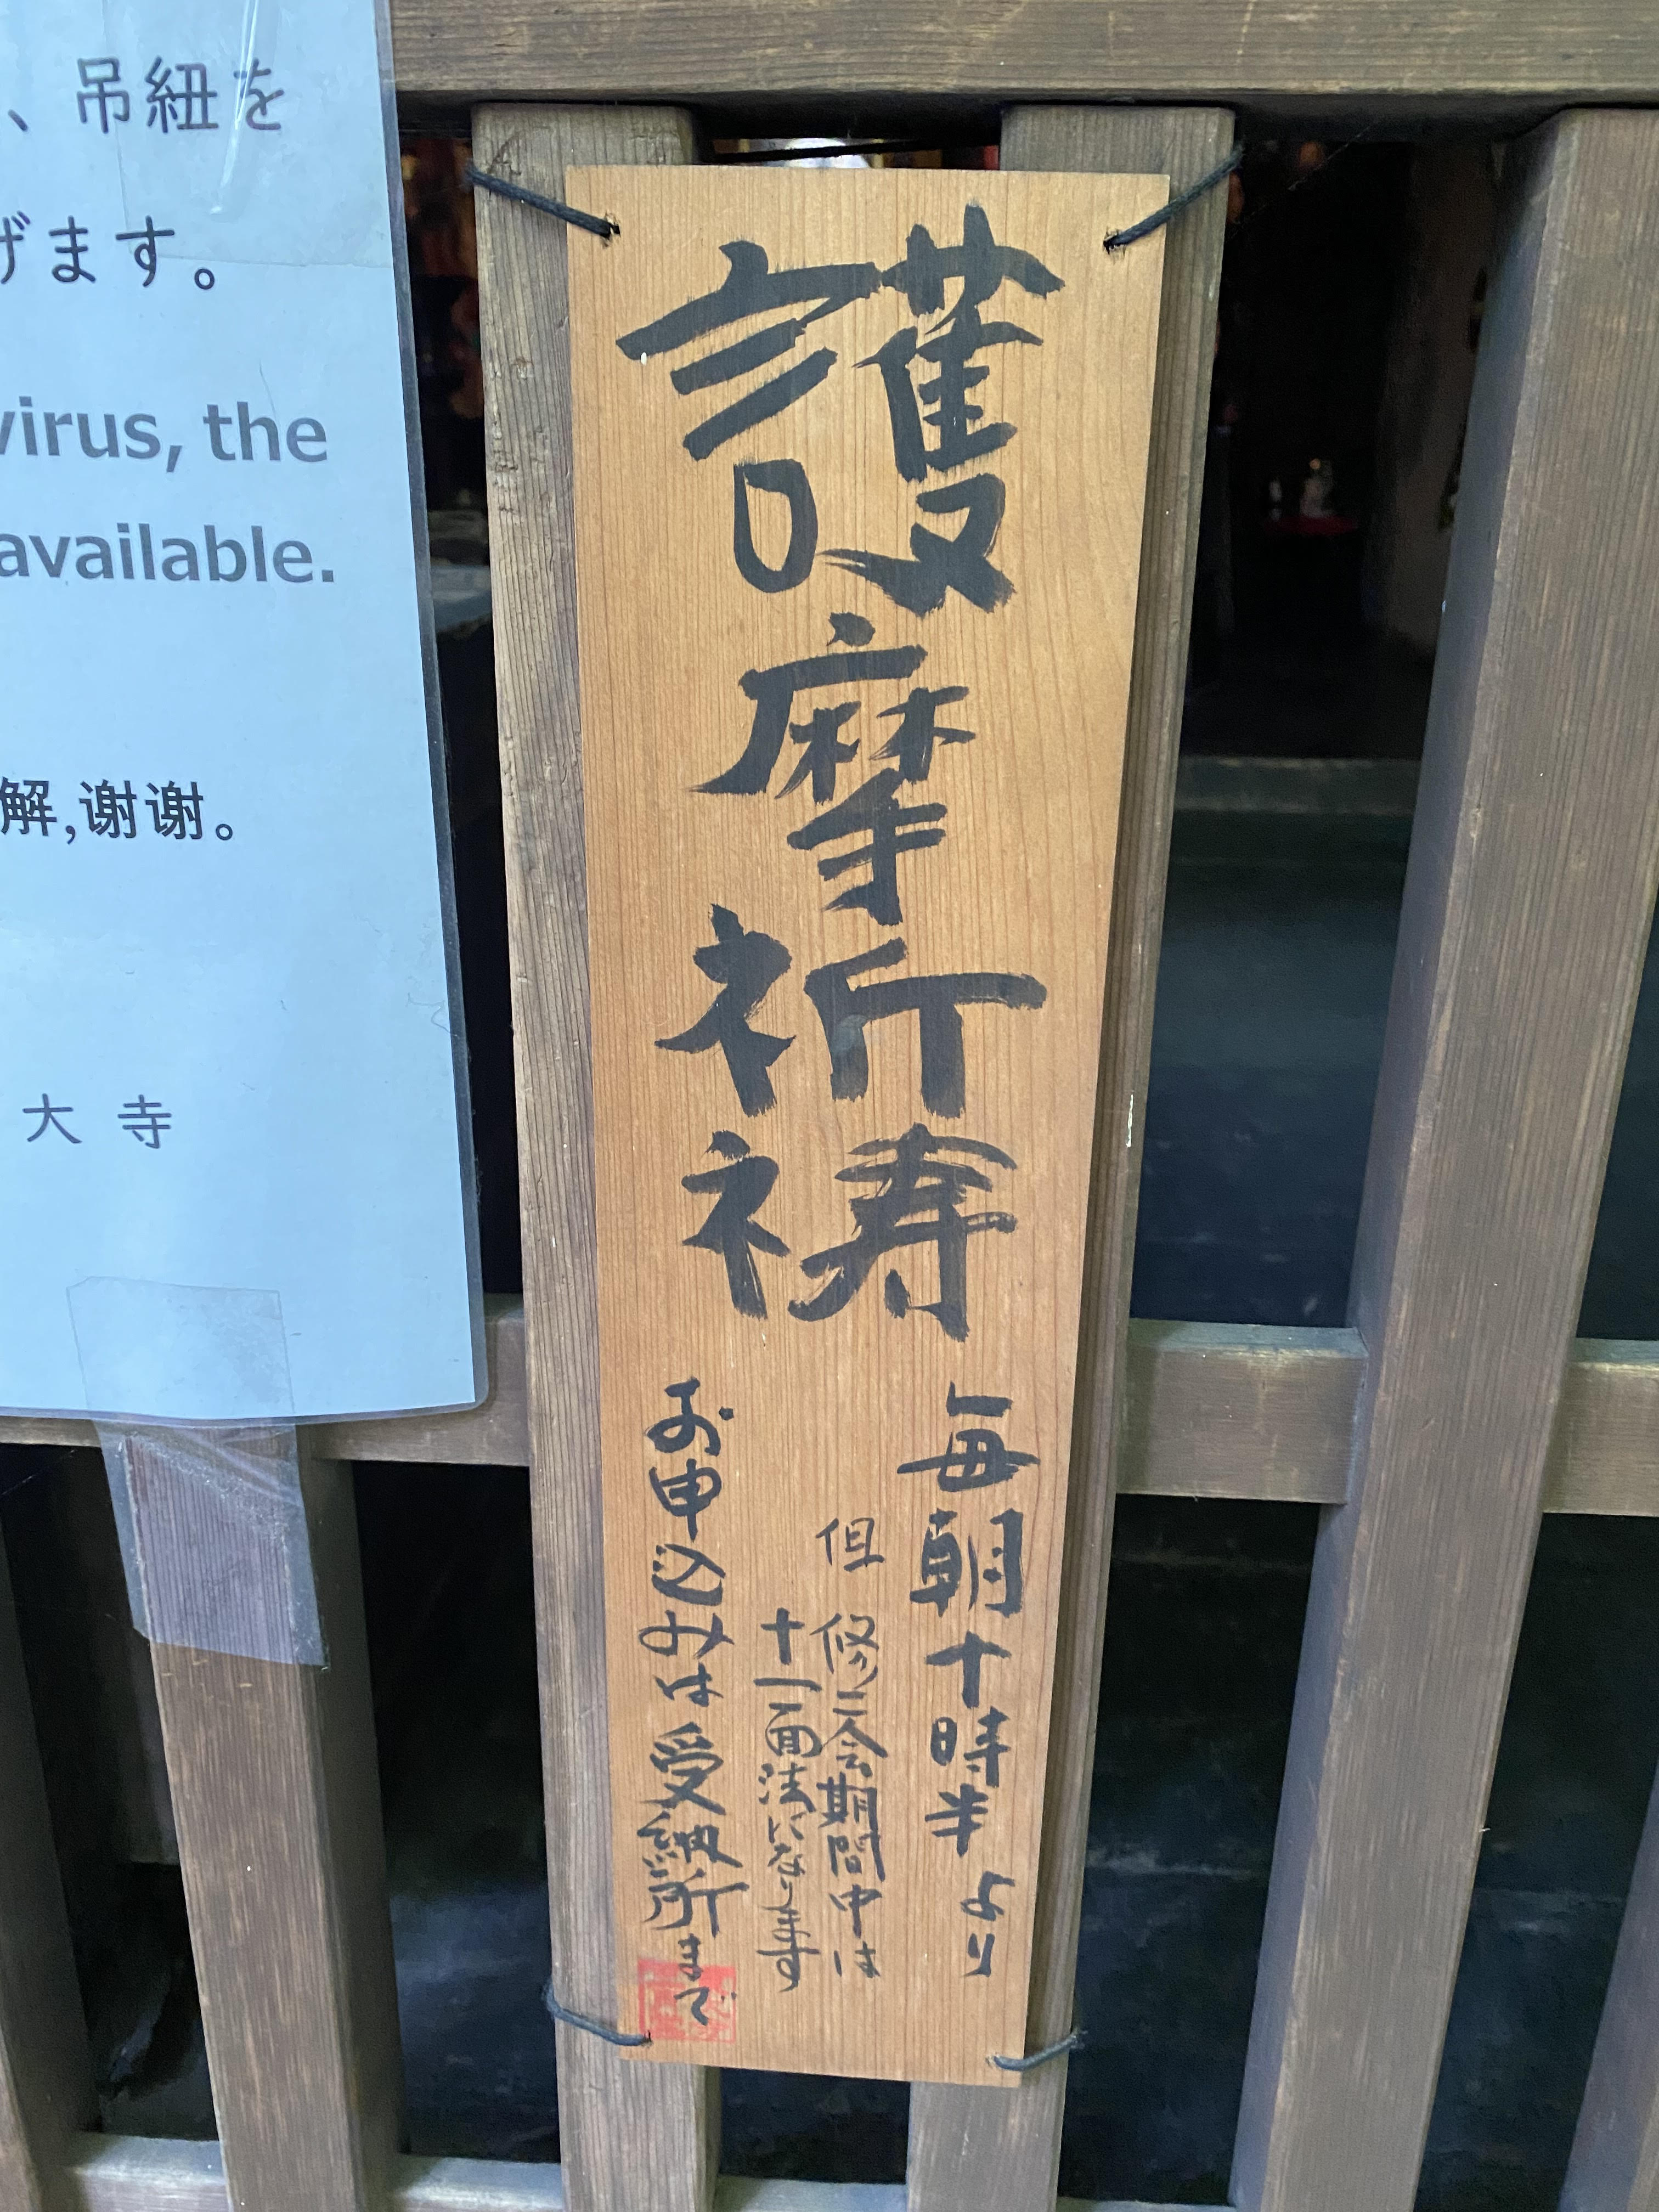 、吊紐を
げます。
virus, the
available.
解,谢谢。
大寺
護摩祈祷
毎朝十時半より
但 修二会期間中は
十一面法になります
お申込みは受納所まで